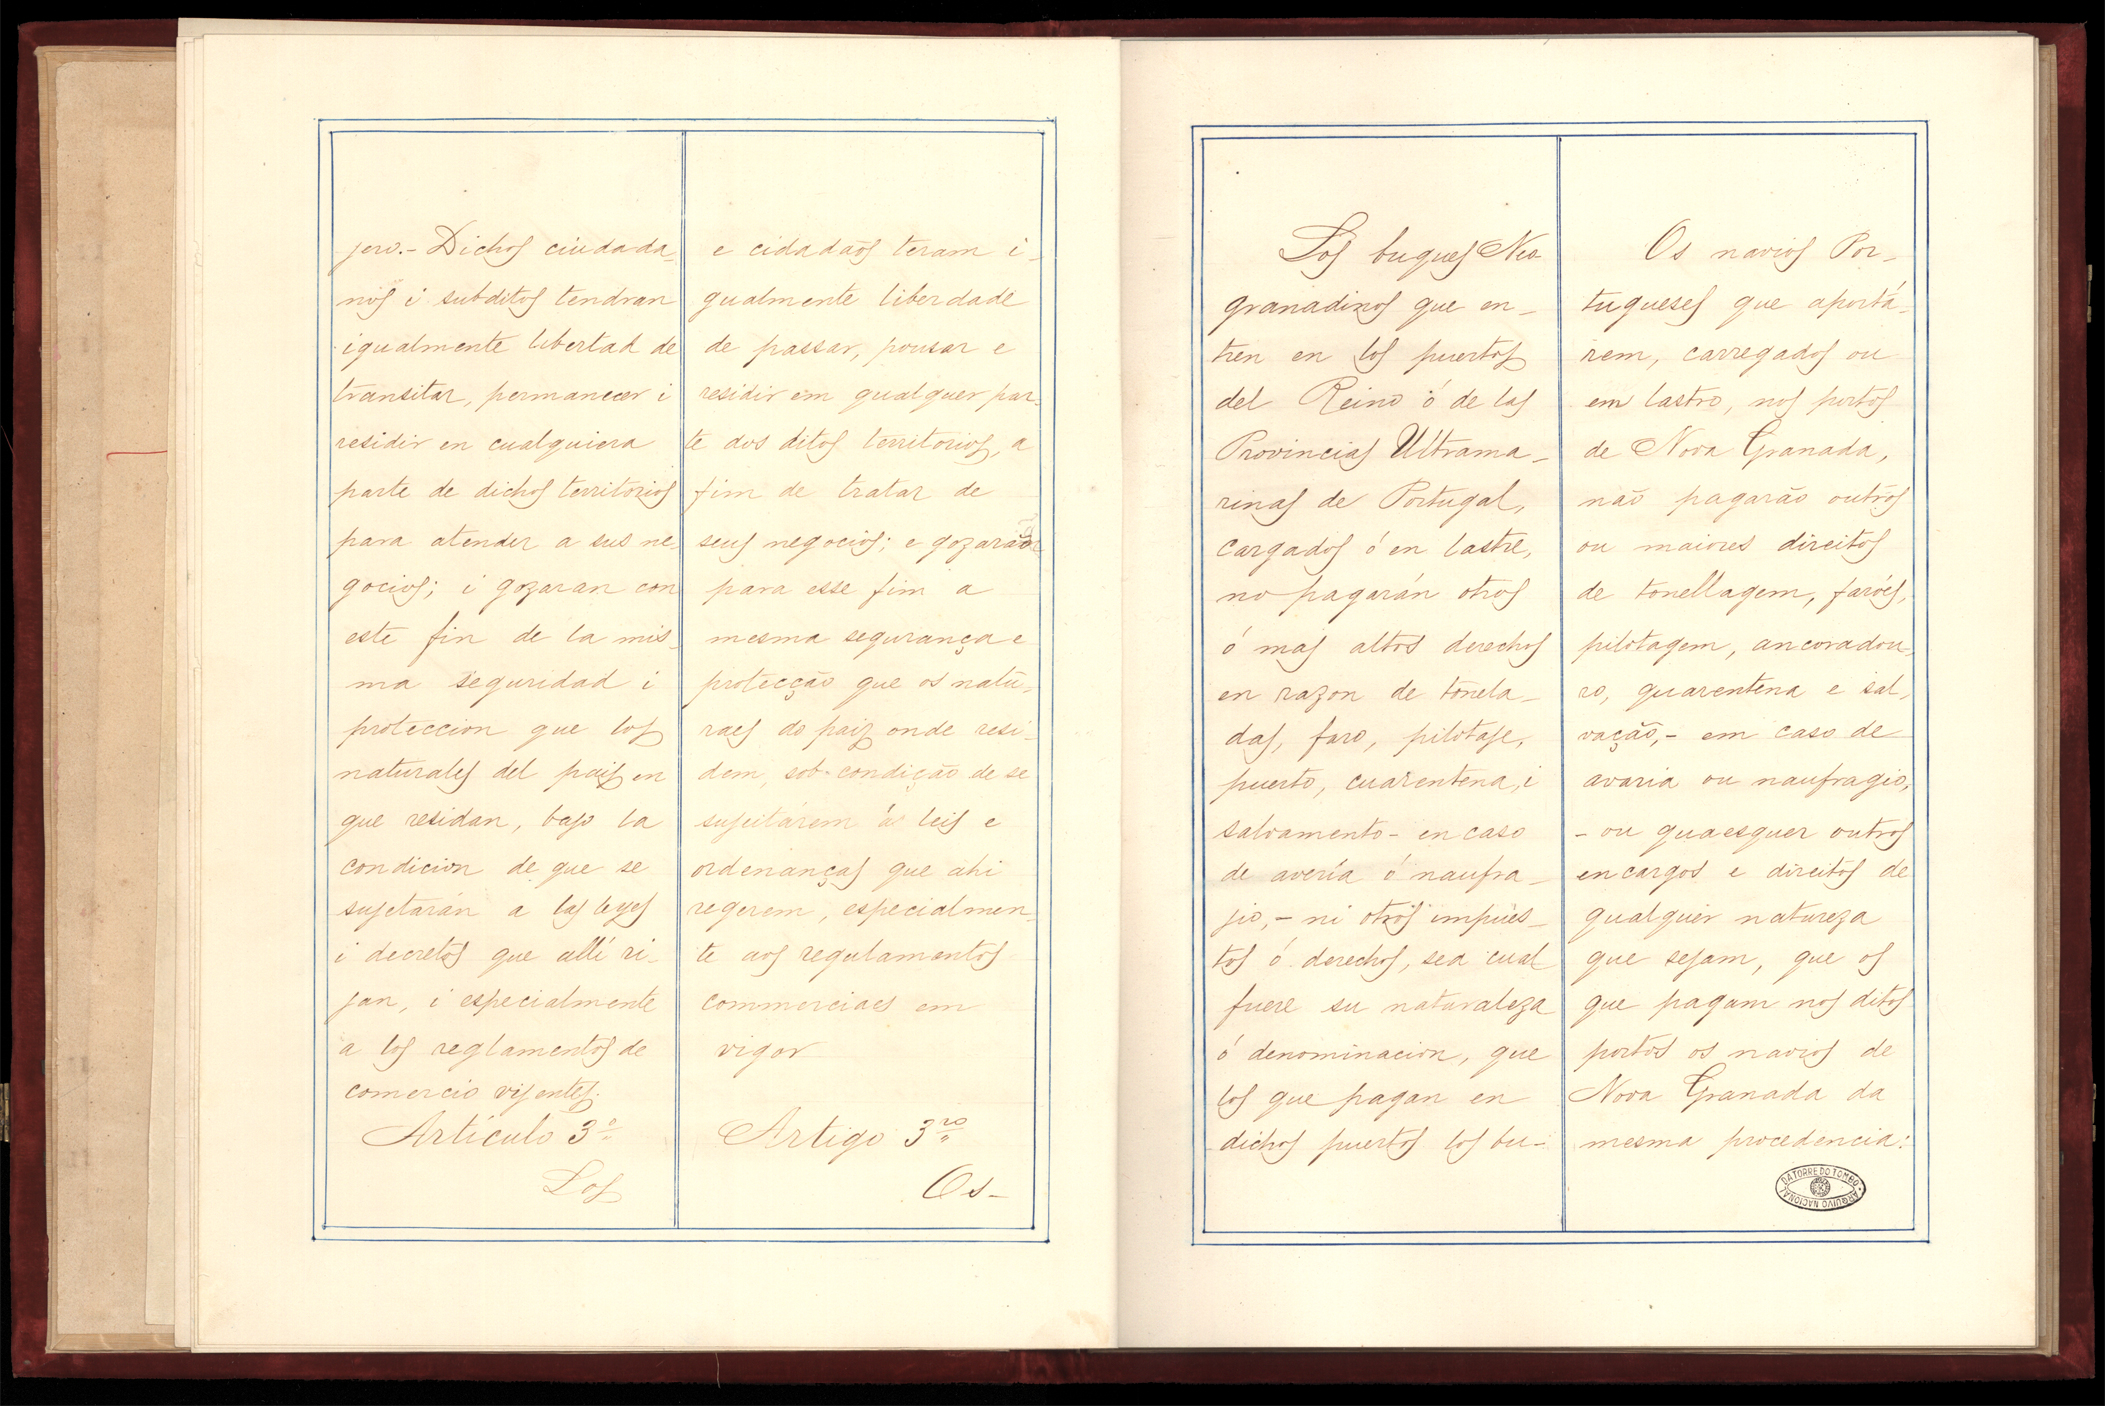 jero.- Dichos ciudada-
nos i subditos tendran
igualmente libertad de
transitar, permanecer i
residir en cualquiera
parte de dichos territorios
para atender a sus ne-
gocios; i gozaran con
este fin de la mis-
ma seguridad i
proteccion que los
naturales del pais en
que residan, bajo la
condicion de que se
sujetarán a las leyes
i decretos que allí ri-
jan, i especialmente
a los reglamentos de
comercio vijentes.
Artículo 3º
Los
e cidadaõs teram i-
gualmente liberdade
de passar, pousar e
residir em qualquer par-
te dos ditos territorios, a
fim de tratar de
seus negocios; e gozarão
para esse fim a
mesma segurança e
protecção que os natu-
raes do paiz onde resi-
dem, sob condição de se
sujeitárem ás leis e
ordenanças que ahi
regerem, especialmen-
te aos regulamentos
commerciaes em
vigor
Artigo 3ro
Os-
Los buques Neo
granadinos que en-
tren en los puertos
del Reino ó de las
Provincias Ultrama-
rinas de Portugal,
cargados ó en lastre,
no pagarán otros
ó mas altos derechos
en razon de tonela-
das, faro, pilotaje,
puerto, cuarentena, i
salvamento - en caso
de avería ó naufra-
jio, - ni otros impues-
tos ó derechos, sea cual
fuere su naturaleza
ó denominacion, que
los que pagan en
dichos puertos los bu-
Os navios Por-
tugueses que aportá-
rem, carregados ou
em lastro, nos portos
de Nova Granada,
não pagarão outros
ou maiores direitos
de tonellagem, faróes,
pilotagem, ancoradou-
ro, quarentena e sal-
vação, - em caso de
avaria ou naufragio,
- ou quaesquer outros
encargos e direitos de
qualquer natureza
que sejam, que os
que pagam nos ditos
portos os navios de
Nova Granada da
mesma procedencia:
ARQUIVO NACIONAL DA TORRE DO TOMBO